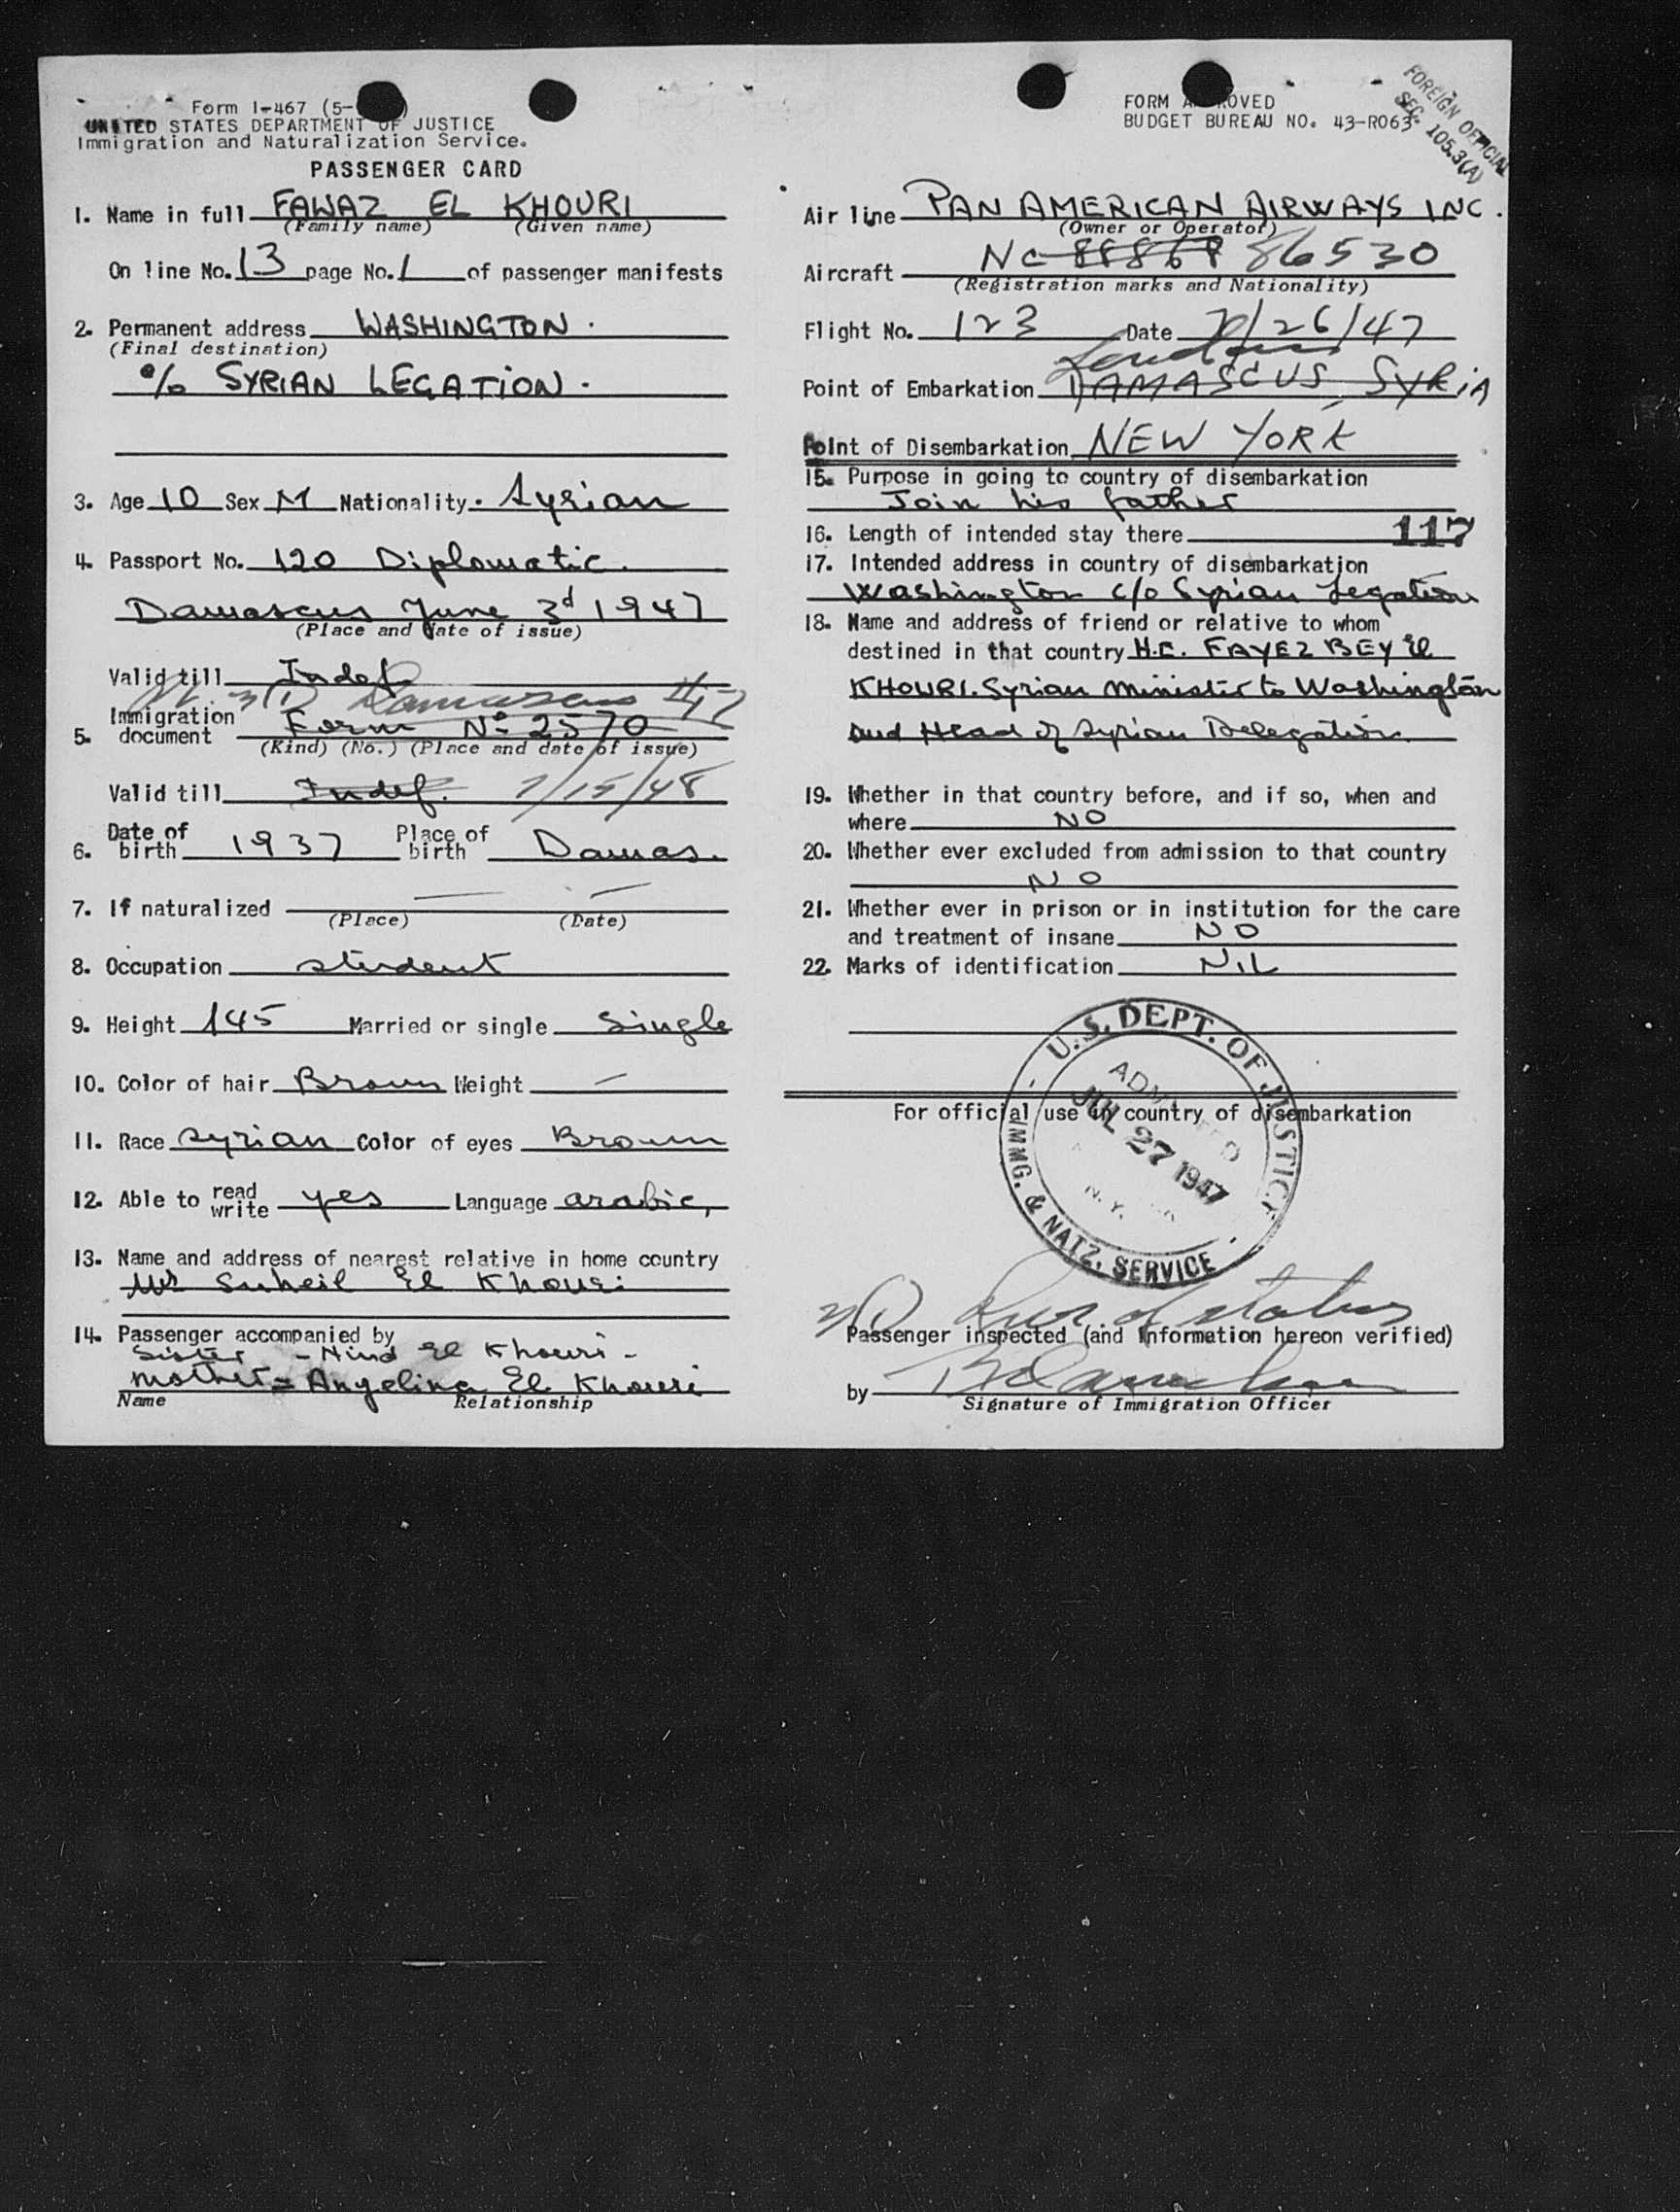 Form I-467 (5-
UNITED STATES DEPARTMENT OF JUSTICE
Immigration and Naturalization Service.
PASSENGER CARD
1. Name in full FAWAZ EL KHOURI
(Family name) (Given name)
On line No. 13 page No. 1 of passenger manifests
2. Permanent address WASHINGTON.
(Final destination)
% SYRIAN LEGATION.
3. Age 10 Sex M Nationality. Syrian
4. Passport No. 120 Diplomatic.
Damascus June 3d 1947
(Place and date of issue)
Valid till Indef
3(1) Damascus
5. Immigration document Form No 2570
(Kind) (No.) (Place and date of issue)
Valid till Indef. 7/15/48
6. Date of birth 1937 Place of birth Damas.
7. If naturalized — —
(Place) (Date)
8. Occupation student
9. Height 145 Married or single Single
10. Color of hair Brown Weight —
11. Race Syrian Color of eyes Brown
12. Able to read write yes Language arabic,
13. Name and address of nearest relative in home country
Mr Suheil El Khouri
14. Passenger accompanied by
Sister - Hind El Khouri -
mother = Angelina El Khouri
Name Relationship
FORM APPROVED
BUDGET BUREAU NO. 43-R063
FOREIGN OFFICIAL
SEC. 105.3(A)
Air line PAN AMERICAN AIRWAYS INC.
(Owner or Operator)
Aircraft NC 88868 86530
(Registration marks and Nationality)
Flight No. 123 Date 7/26/47
London
Point of Embarkation DAMASCUS SYRIA
Point of Disembarkation NEW YORK
15. Purpose in going to country of disembarkation
Join his father
16. Length of intended stay there 117
17. Intended address in country of disembarkation
Washington c/o Syrian Legation
18. Name and address of friend or relative to whom
destined in that country H.E. FAYEZ BEY El
KHOURI. Syrian Minister to Washington
and Head of Syrian Delegation
19. Whether in that country before, and if so, when and
where NO
20. Whether ever excluded from admission to that country
NO
21. Whether ever in prison or in institution for the care
and treatment of insane NO
22. Marks of identification NIL
For official use in country of disembarkation
U.S. DEPT. OF JUSTICE
ADMITTED
JUL 27 1947
N.Y.
IMMG. & NATZ. SERVICE
3(1) Dur of status
Passenger inspected (and information hereon verified)
by
Signature of Immigration Officer